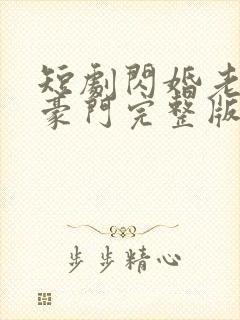 短劇閃婚老
豪門完整版
步步精心